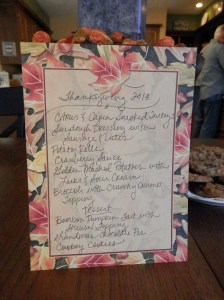 Thanksgiving 2013
Citrus & Cajun Smoked Turkey
Sourdough Dressing with
Sausage &
Potato Rolls
Cranberry Sauce
Golden Mashed Potatoes with
Leeks & Sour Cream
Broccoli with Crunchy Crumb
Topping
Dessert
Bourbon Pumpkin Tart with
Streusel Topping
Grandmas Chocolate Pie
Cowboy Cookies